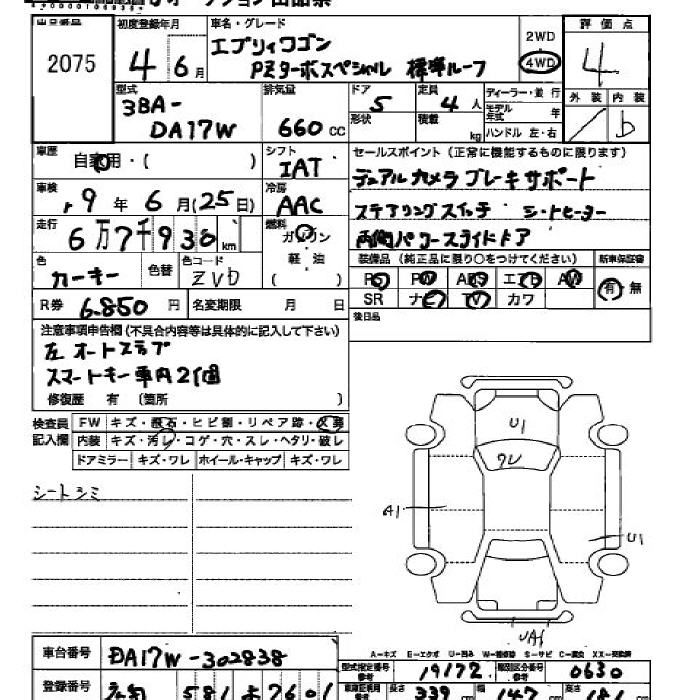 出品番号 初度登録年月 車名・グレード 評価点
2075 4 6月 エブリィワゴン 2WD 4
PZターボスペシャル 標準ルーフ 4WD
型式 排気量 ドア 定員 ディーラー・並行 外装 内装
3BA- 5 4人 モデル年式 年 / b
DA17W 660cc 形状 積載 kg ハンドル 左・右
車歴 自家用・( ) シフト IAT セールスポイント(正常に機能するものに限ります)
デュアルカメラブレーキサポート
車検 r9年6月(25日) 冷房 AAC ステアリングスイッチ シートヒーター
走行 6万7千930km 燃料 ガソリン 両側パワースライドドア
軽油 装備品(純正品に限り○をつけてください) 新車保証書
色 カーキー 色替 色コード ZVD PS PW ABS エアB AW 有・無
R券 6.850円 名変期限 月 日 SR ナビ TV カワ
後日品
注意事項申告欄(不具合内容等は具体的に記入して下さい)
左オートステップ
スマートキー車内2個
修復歴 有(箇所 )
検査員記入欄 FW キズ・飛石・ヒビ割・リペア跡・
内装 キズ・汚レ・コゲ・穴・スレ・ヘタリ・破レ
ドアミラー キズ・ワレ ホイール・キャップ キズ・ワレ
シートシミ
U1
A1
U1
UA1
A=キズ E=エクボ U=凹み
車台番号 DA17W-302838
型式指定番号 参考 19172 類別区分番号 参考 0630
登録番号 581 あ 2601
長さ 339 cm 幅 147 cm 高さ